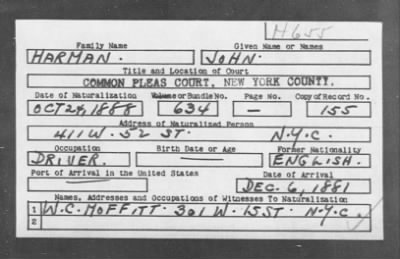 H655
Family Name Given Name or Names
HARMAN. JOHN.
Title and Location of Court
COMMON PLEAS COURT, NEW YORK COUNTY.
Date of Naturalization Volume or Bundle No. Page No. Copy of Record No.
OCT 24, 1888 634 — 155
Address of Naturalized Person
411 W. 52 ST. N.Y.C.
Occupation Birth Date or Age Former Nationality
DRIVER. — ENGLISH.
Port of Arrival in the United States Date of Arrival
— DEC. 6, 1881
Names, Addresses and Occupations of Witnesses To Naturalization
1 W.C. MOFFITT. 301 W. 15 ST. N.Y.C.
2